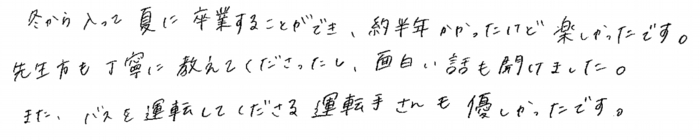 冬から入って夏に卒業することができ、約半年かかったけど楽しかったです。
先生方も丁寧に教えてくださったし、面白い話も聞けました。
また、バスを運転してくださる運転手さんも優しかったです。